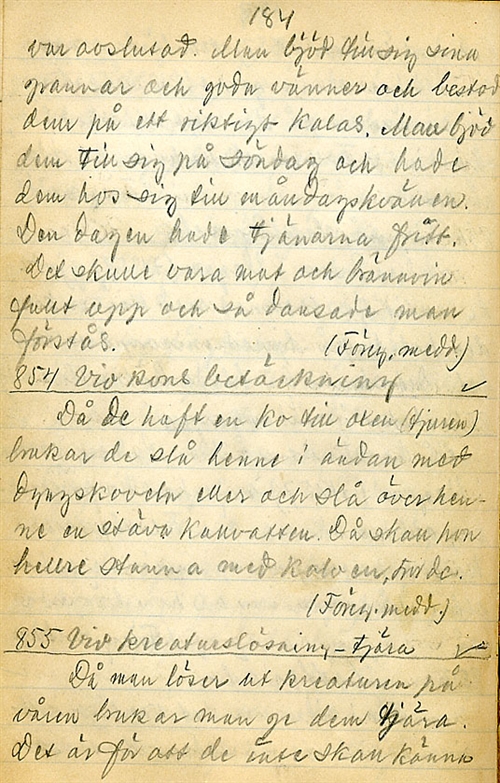 184
var avslutad. Man bjöd till sig sina
grannar och goda vänner och bestod
dem på ett riktigt kalas. Man bjöd
dem till sig på söndag och hade
dem hos sig till måndagskvällen.
Den dagen hade tjänarna fritt.
Det skulle vara mat och brännvin
fullt upp och så dansade man
förstås. (Föreg. medd.)
854 Vid kons betäckning
Då de haft en ko till oxen (tjuren)
brukar de slå henne i ändan med
dyngskoveln eller och slå över hen-
ne en stäva kallvatten. Då skall hon
hellre stanna med kalven, tro de.
(Föreg. medd.)
855 Vid kreaturslösning - tjära
Då man löser ut kreaturen på
våren brukar man ge dem tjära.
Det är för att de inte skall känna